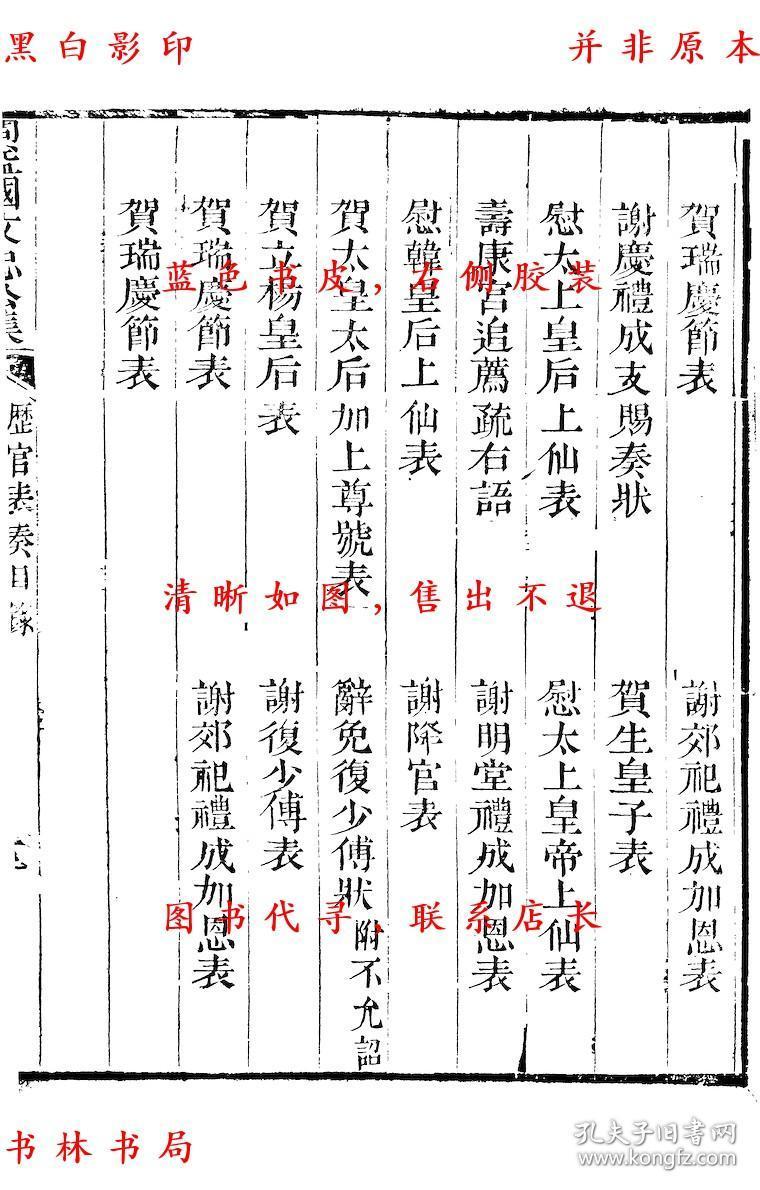 黑白影印
并非原本
賀瑞慶節表
謝郊祀禮成加恩表
謝慶禮成支賜奏狀
賀生皇子表
慰太上皇后上仙表
慰太上皇帝上仙表
壽康宮追薦疏右語
謝明堂禮成加恩表
慰韓皇后上仙表
謝降官表
賀太皇太后加上尊號表
辭免復少傅狀附不允詔
賀立楊皇后表
謝復少傅表
賀瑞慶節表
謝郊祀禮成加恩表
賀瑞慶節表
國文忠
集
歷官表奏目錄
蓝色书皮,右侧胶装
清晰如图,售出不退
图书代寻,联系店长
书林书局
孔夫子旧书网
www.kongfz.com